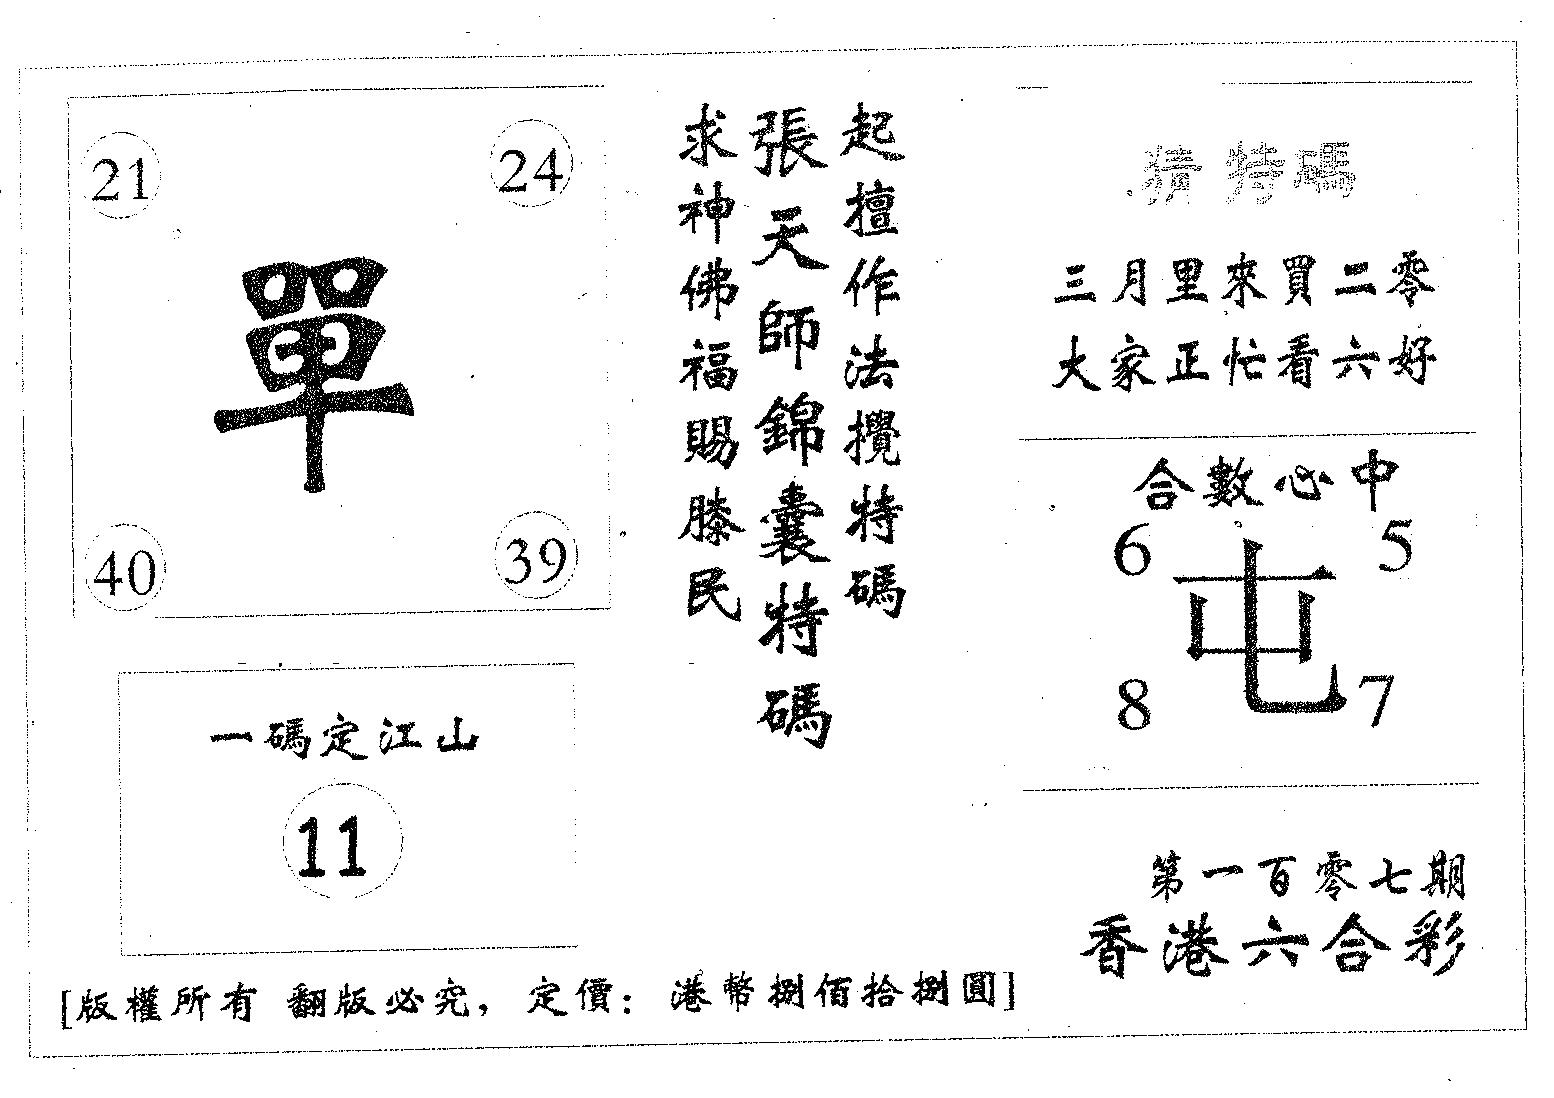 21
24
單
40
39
一碼定江山
11
起擅作法攪特碼
張天師錦囊特碼
求神佛福賜滕民
猜特碼
三月里來買二零
大家正忙看六好
合數必中
6
5
屯
8
7
第一百零七期
香港六合彩
[版權所有 翻版必究，定價：港幣捌佰拾捌圓]